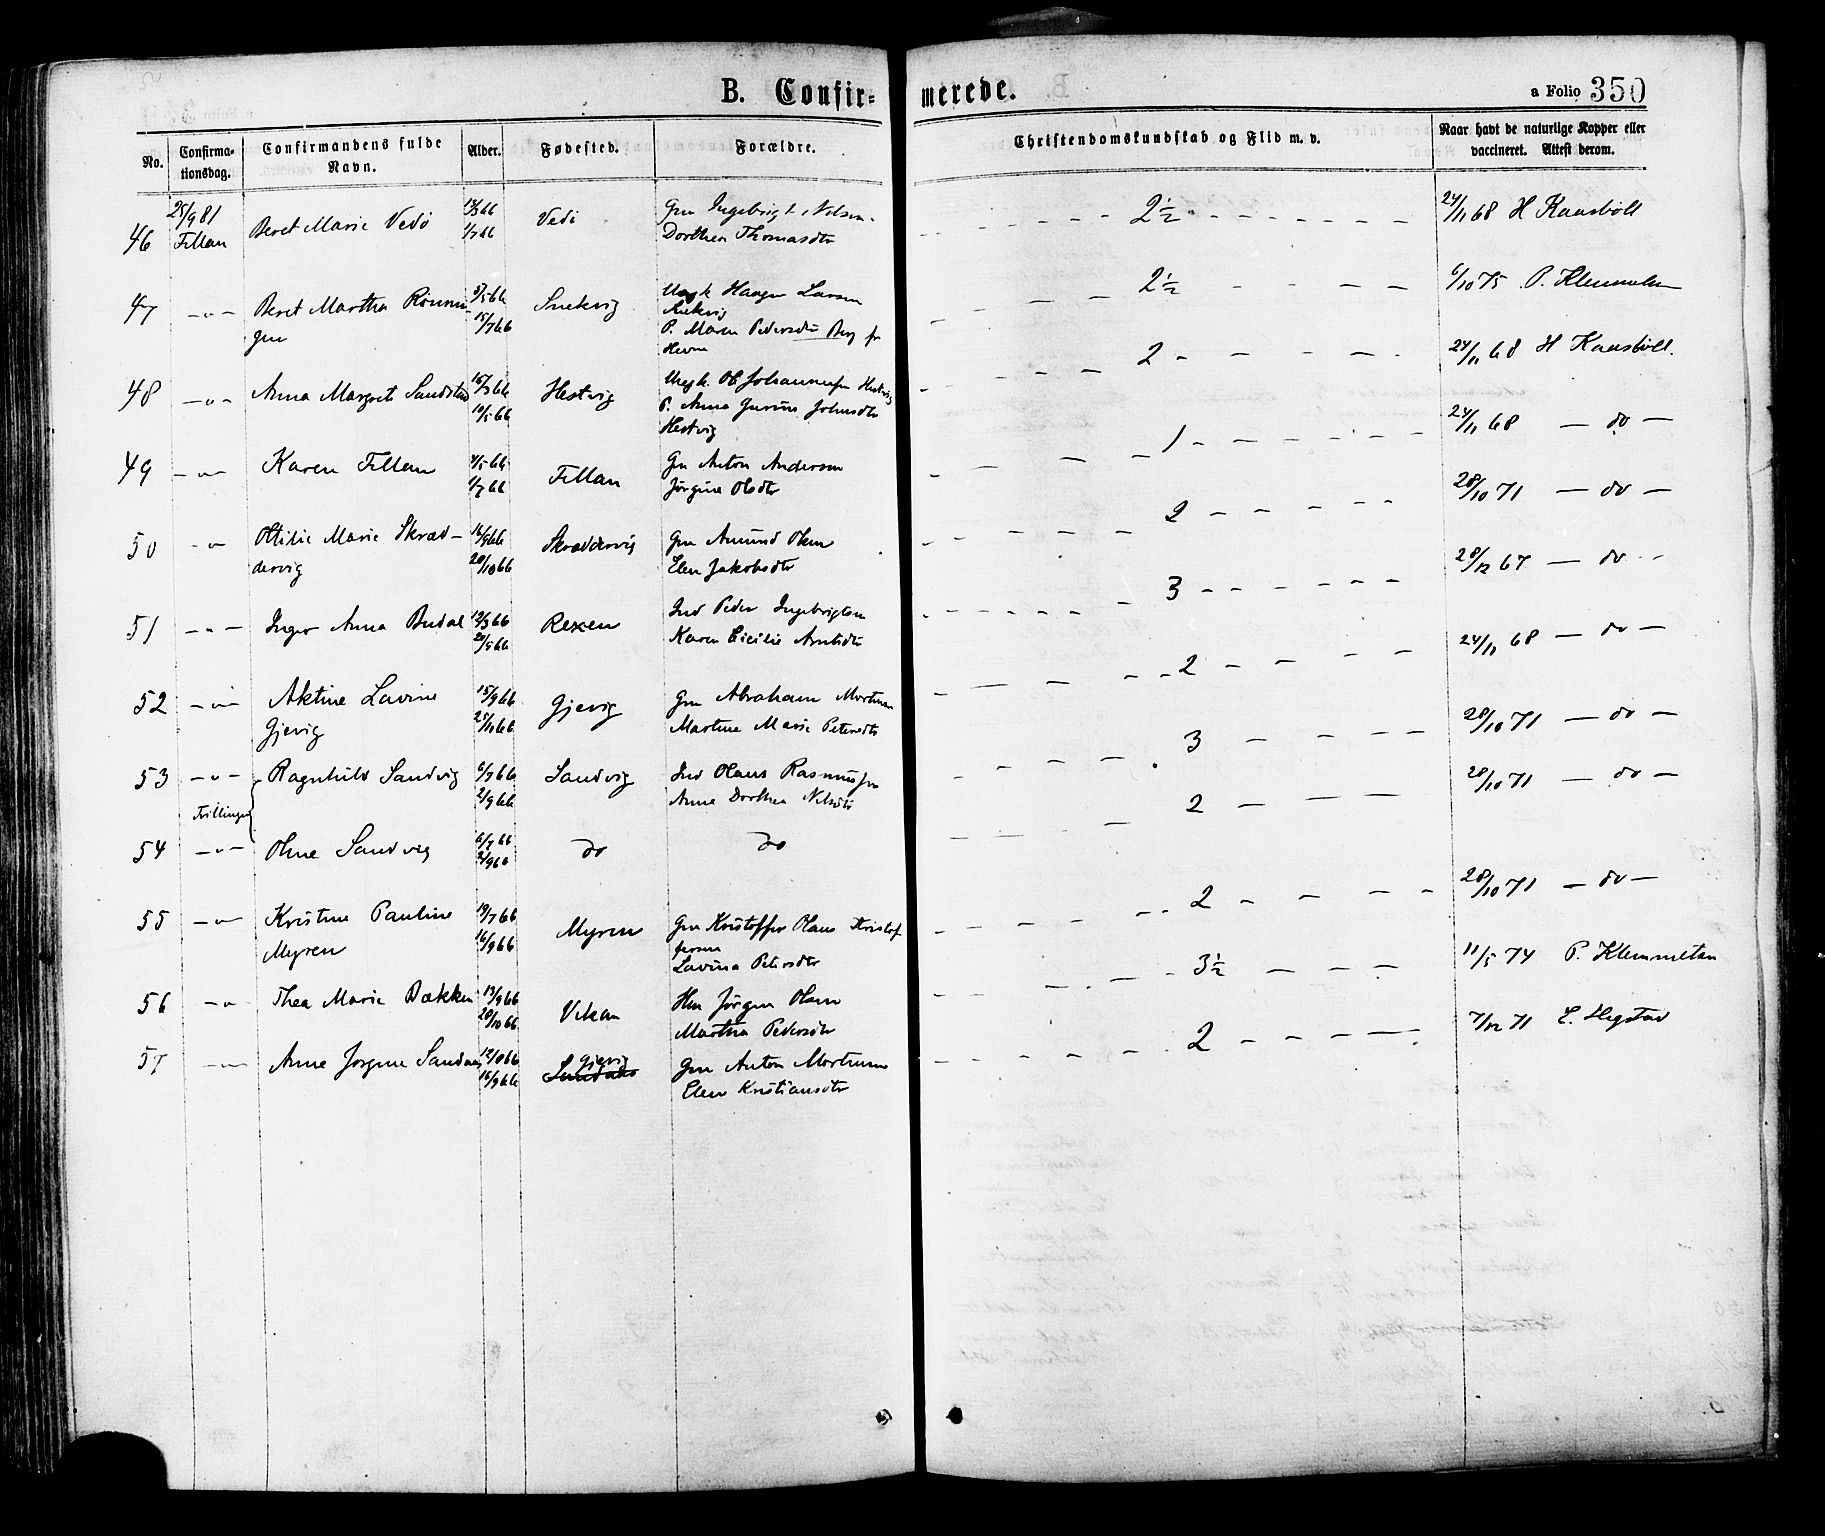 B. Confir= merede.
a Folio 350
No.
Confirma-
tionsdag.
Confirmandens fulde
Navn.
Alder.
Fødested.
Forældre.
Christendomskundskab og Flid m. v.
Naar havt de naturlige Kopper eller
vaccineret. Attest derom.
46 25/9 81 Fillan Beret Marie Vedø 1/7 66 Vedø Gm Ingebrigt Nilsen
Dorthea Thomasdtr
2½ 24/11 68 H Kaasbøll
47 — " — Beret Martha 15/7 66 Snekvig Ungk Haagen Larsen
Snekvig
P. Maren Pedersdtr Berg fr
Hevne
2½ 6/10 75 P. Klemmetsen
48 — " — Anna Margrete Sandstad 10/5 66 Hestvig Ungk. Ole Johannessen Hestvig
P. Anna Johnsdtr
Hestvig
2 24/11 68 H Kaasbøll.
49 — " — Karen Fillan 4/5 66 1/7 66 Fillan Gm Anton Andersen
Jørgine Olsdtr
1 24/11 68 — do —
50 — " Otilie Marie Skræd-
dervig 16/9 66 28/10 66 Skræddervig Gm Amund Olsen
Elen Jakobsdtr
2 28/10 71 — do —
51 — " — Inger Anna Budal 12/3 66 20/5 66 Rexen Ind Peder Ingebrigtsen
Karen Cicilie Arntsdtr
3 28/12 67 — do —
52 — " — Aktine Lavine
Gjevig 15/9 66 25/11 66 Gjevig Gm Abraham Mortensen
Martine Marie Petersdtr
2 24/11 68 — do —
53 — " — Ragnhild Sandvig 6/7 66 2/9 66 Sandvig Ind Olaus Rasmussen
Anne Dorthea Nilsdtr
3 28/10 71 — do —
Tvillinger
54 — " — Oline Sandvig 6/7 66 2/9 66 do do
2 28/10 71 — do —
55 — " — Kristine Pauline
Myren 19/7 66 16/9 66 Myren Gm Kristoffer Olaus Kristof
fersen
Lavina Petersdtr
2 28/10 71 — do —
56 — " — Thea Marie Bækken 13/9 66 28/10 66 Vikan Hm Jørgen Olsen
Martha Pedersdtr
3½ 11/5 74 P. Klemmetsen
57 — " — Anne Jørgine Sandnes 12/8 66 16/9 66 Gjevig Gm Anton Mortensen
Elen Kristiansdtr
2 7/12 71 E. Hegstad